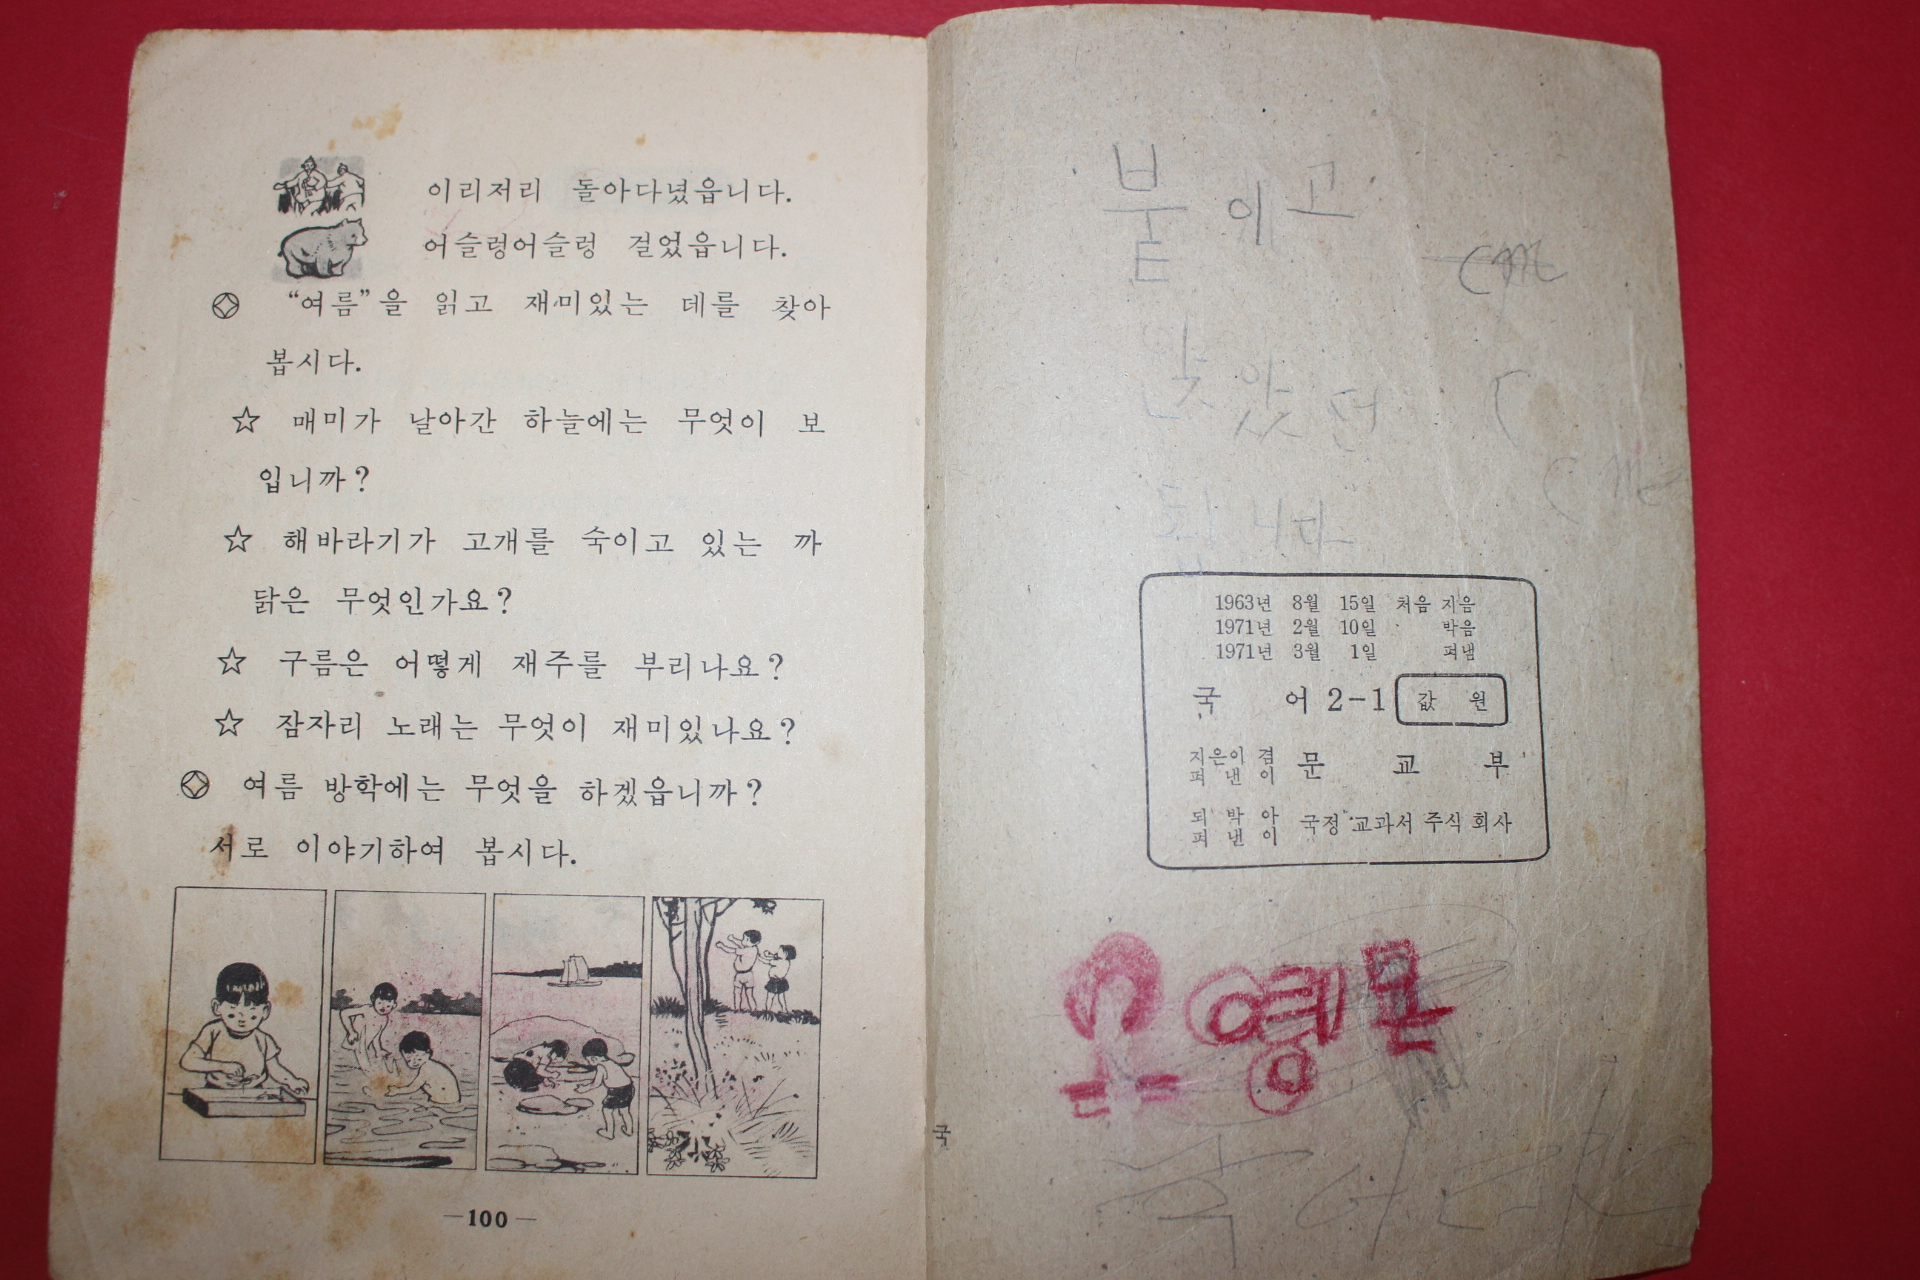 이리저리 돌아다녔읍니다.
어슬렁어슬렁 걸었읍니다.
“여름”을 읽고 재미있는 데를 찾아
봅시다.
☆ 매미가 날아간 하늘에는 무엇이 보
입니까?
☆ 해바라기가 고개를 숙이고 있는 까
닭은 무엇인가요?
☆ 구름은 어떻게 재주를 부리나요?
☆ 잠자리 노래는 무엇이 재미있나요?
여름 방학에는 무엇을 하겠읍니까?
서로 이야기하여 봅시다.
—100—
붙이고
니다
1963년 8월 15일 처음 지음
1971년 2월 10일 박음
1971년 3월 1일 펴냄
국 어 2-1 값 원
지은이 겸
펴 낸 이
문 교 부
되 박 아
펴 낸 이
국정 교과서 주식 회사
국